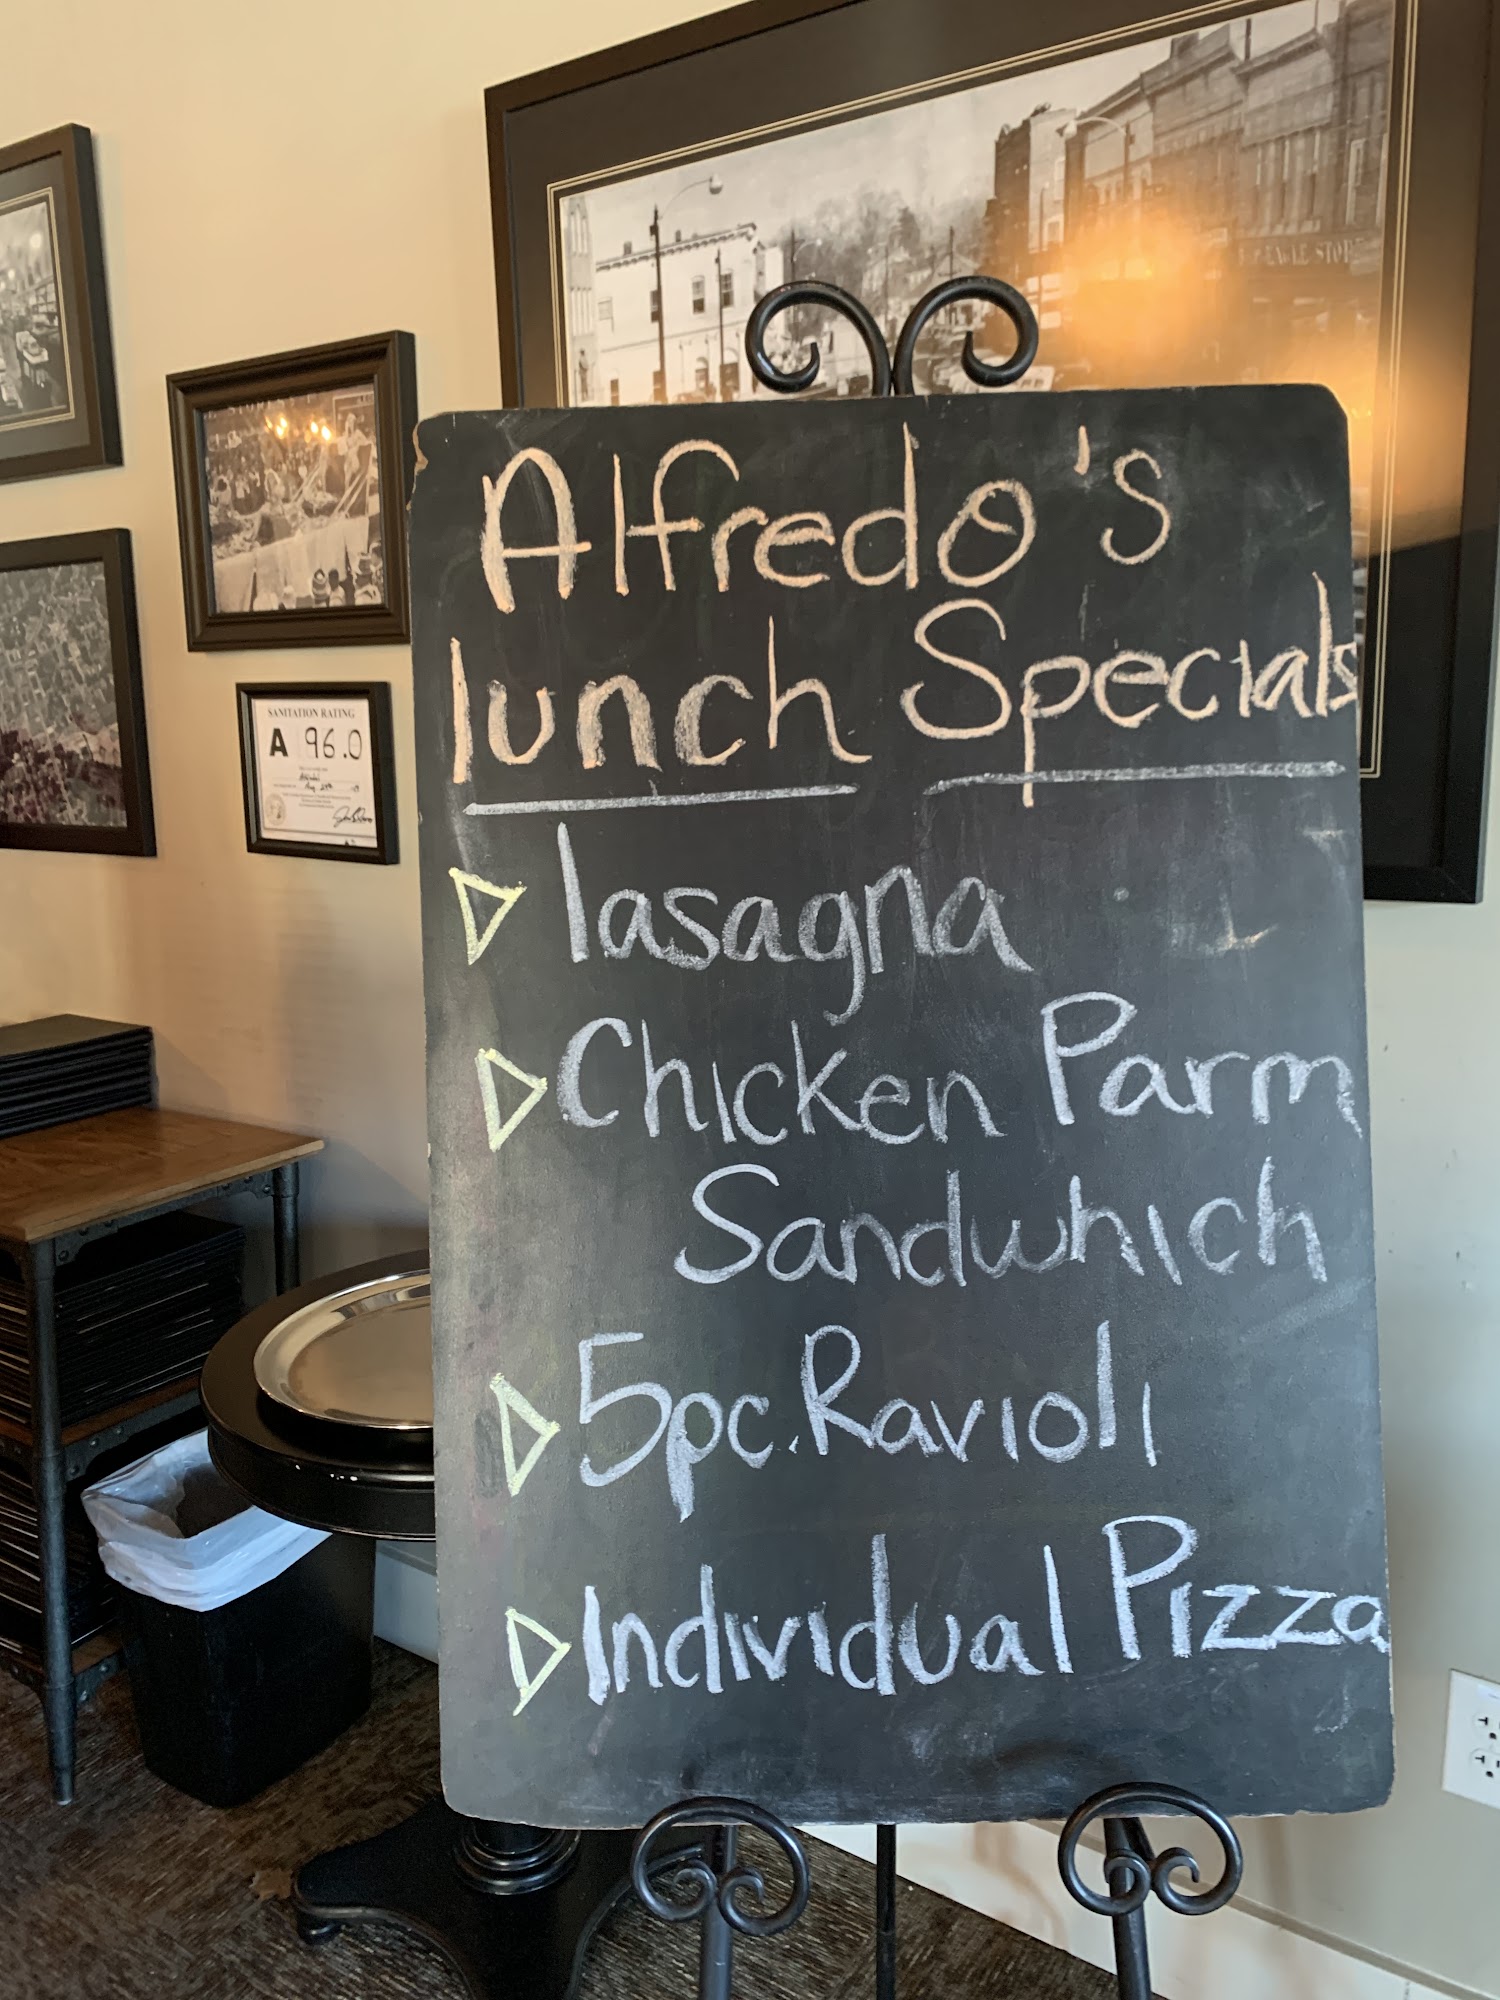 EAGLE STORE
SANITATION RATING
A 96.0
Alfredo's
lunch Specials
lasagna
Chicken Parm
Sandwhich
5pc. Ravioli
Individual Pizza